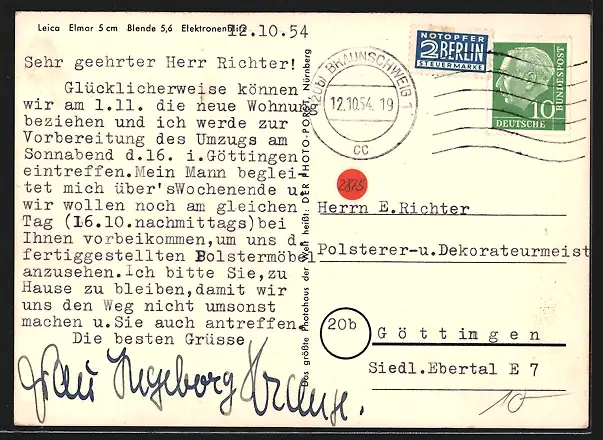 Leica Elmar 5 cm Blende 5,6 Elektronenblitz
12.10.54
Sehr geehrter Herr Richter!
Glücklicherweise können
wir am 1.11. die neue Wohnung
beziehen und ich werde zur
Vorbereitung des Umzugs am
Sonnabend d.16. i.Göttingen
eintreffen.Mein Mann beglei-
tet mich über'sWochenende u.
wir wollen noch am gleichen
Tag (16.10.nachmittags)bei
Ihnen vorbeikommen,um uns d.
fertiggestellten Polstermöbel
anzusehen.Ich bitte Sie,zu
Hause zu bleiben,damit wir
uns den Weg nicht umsonst
machen u.Sie auch antreffen.
Die besten Grüsse
Frau Ingeborg Krause.
Das größte Photohaus der Welt heißt: DER PHOTO-PORST Nürnberg
(20b) BRAUNSCHWEIG 1
12.10.54. 19
cc
NOTOPFER
2 BERLIN
STEUERMARKE
DEUTSCHE
BUNDESPOST
10
2875
Herrn E.Richter
Polsterer-u.Dekorateurmeist
20b
Göttingen
Siedl.Ebertal E 7
10